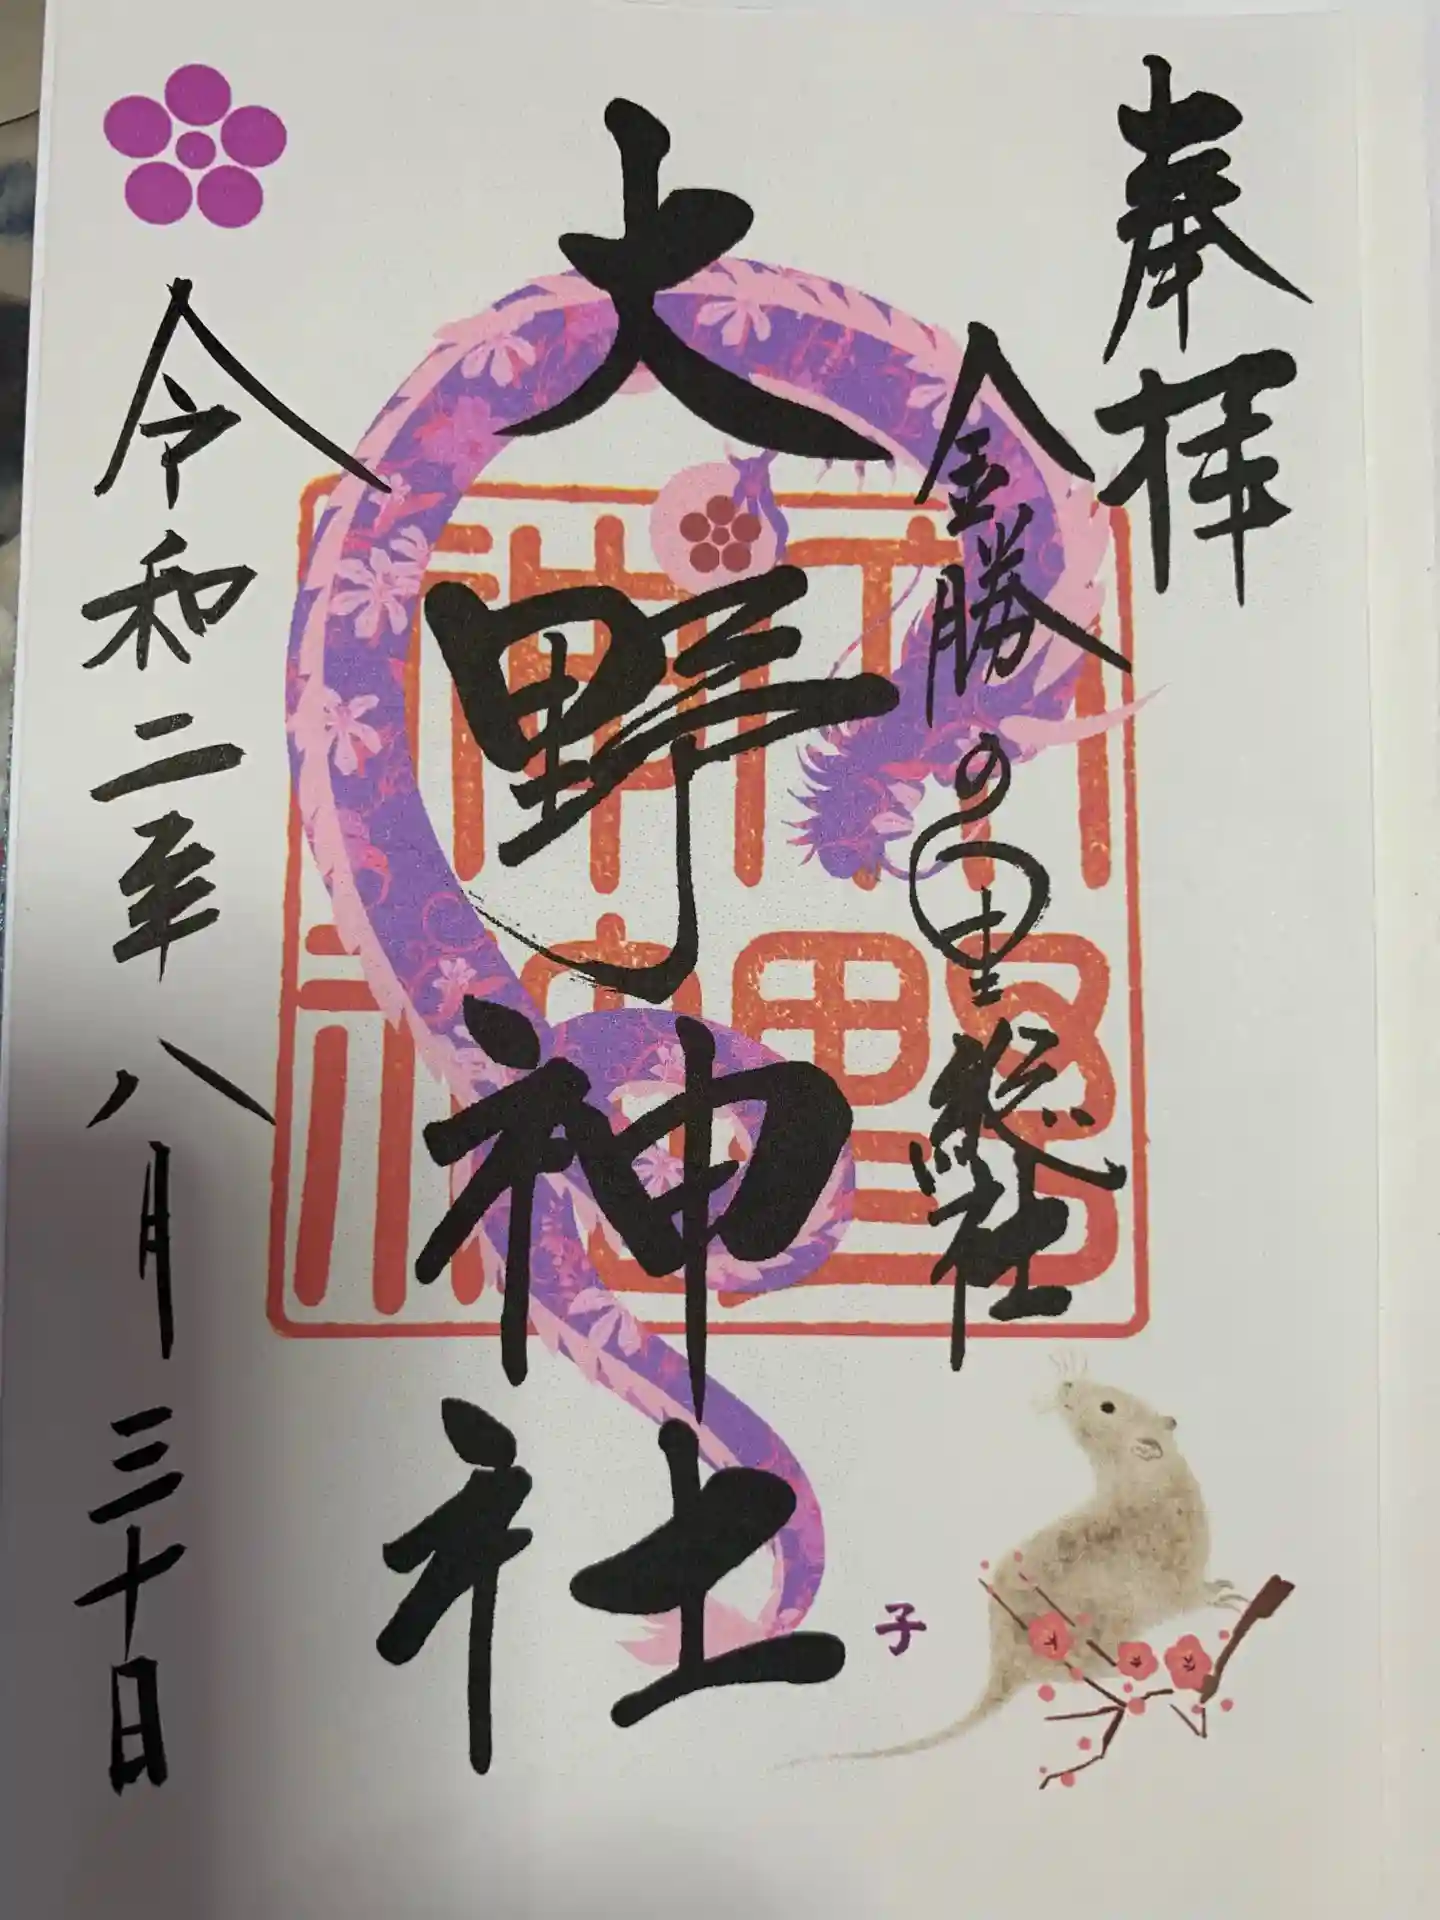 奉拝
金勝の里総社
大野神社
子
令和二年八月三十日